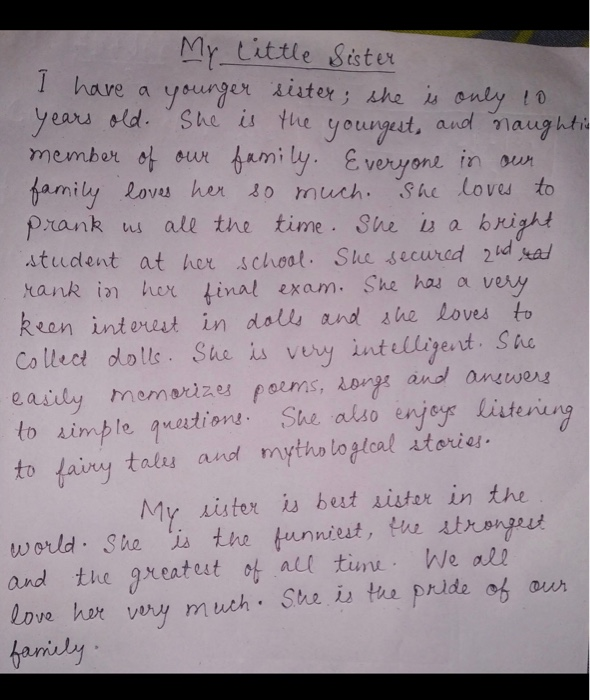 My Little Sister
I have a younger sister; she is only 10
years old. She is the youngest, and naughtie
member of our family. Everyone in our
family loves her so much. She loves to
prank us all the time. She is a bright
student at her school. She secured 2nd
rank in her final exam. She has a very
keen interest in dolls and she loves to
Collect dolls. She is very intelligent. She
easily memorizes poems, songs and answers
to simple questions. She also enjoys listening
to fairy tales and mythological stories.
My sister is best sister in the
world. She is the funniest, the strongest
and the greatest of all time. We all
love her very much. She is the pride of our
family.